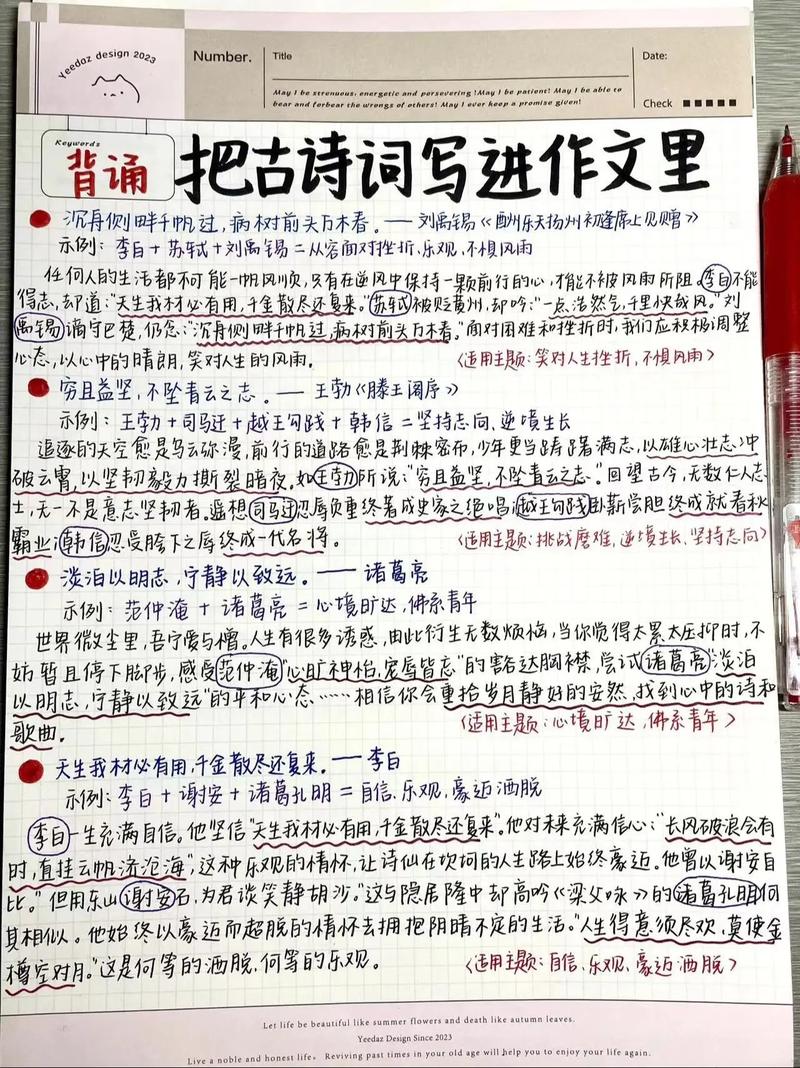 Yeedaz design 2023
Number.
Title
Date:
May I be strenuous, energetic and persevering !May I be patient! May I be able to
bear and forbear the wrongs of others! May I ever keep a promise given!
Check
Keywords
背诵
把古诗词写进作文里
沉舟侧畔千帆过,病树前头万木春。——刘禹锡《酬乐天扬州初逢席上见赠》
示例:李白+苏轼+刘禹锡=从容面对挫折、乐观、不惧风雨
任何人的生活都不可能一帆风顺,只有在逆风中保持一颗前行的心,才能不被风雨所阻。李白不能
得志,却道:"天生我材必有用,千金散尽还复来。"苏轼被贬黄州,却吟:"一点浩然气,千里快哉风。"刘
禹锡谪守巴楚,仍念:"沉舟侧畔千帆过,病树前头万木春。"面对困难和挫折时,我们应积极调整
心态,以心中的晴朗,笑对人生的风雨。
(适用主题:笑对人生挫折,不惧风雨)
穷且益坚,不坠青云之志。——王勃《滕王阁序》
示例:王勃+司马迁+越王勾践+韩信=坚持志向、逆境生长
追逐的天空愈是乌云弥漫,前行的道路愈是荆棘密布,少年更当踌躇满志,以雄心壮志冲
破云霄,以坚韧毅力撕裂暗夜。如王勃所说:"穷且益坚,不坠青云之志。"回望古今,无数仁人志
士,无一不是意志坚韧者。遥想司马迁忍辱负重终著成史家之绝唱;越王勾践卧薪尝胆终成就春秋
霸业;韩信忍受胯下之辱终成一代名将。
(适用主题:挑战磨难,逆境生长,坚持志向)
淡泊以明志,宁静以致远。——诸葛亮
示例:范仲淹+诸葛亮=心境旷达,佛系青年
世界微尘里,吾宁爱与憎。人生有很多诱惑,由此衍生无数烦恼,当你觉得太累太压抑时,不
妨暂且停下脚步,感受范仲淹"心旷神怡,宠辱皆忘"的豁达胸襟,尝试诸葛亮"淡泊
以明志,宁静以致远"的平和心态……相信你会重拾岁月静好的安然,找到心中的诗和
歌曲。
(适用主题:心境旷达,佛系青年)
天生我材必有用,千金散尽还复来。——李白
示例:李白+谢安+诸葛孔明=自信、乐观、豪迈洒脱
李白一生充满自信。他坚信"天生我材必有用,千金散尽还复来"。他对未来充满信心:"长风破浪会有
时,直挂云帆济沧海",这种乐观的情怀,让诗仙在坎坷的人生路上始终豪迈。他曾以谢安自
比。"但用东山谢安石,为君谈笑静胡沙。"这与隐居隆中却高吟《梁父咏》的诸葛孔明何
其相似。他始终以豪迈而超脱的情怀去拥抱阴晴不定的生活。"人生得意须尽欢,莫使金
樽空对月。"这是何等的洒脱,何等的乐观。
(适用主题:自信、乐观、豪迈洒脱)
Let life be beautiful like summer flowers and death like autumn leaves.
Yeedaz Design Since 2023
Live a noble and honest life. Reviving past times in your old age will help you to enjoy your life again.